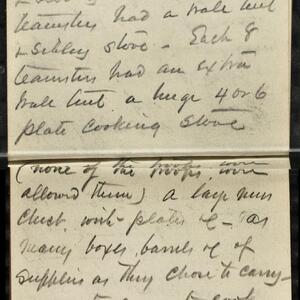 teamsters had a wall tent
& Sibley stove - Each 8
teamsters had an extra
wall tent a huge 4 or 6
plate cooking stove
(none of the troops were
allowed them) a large mess
chest, with plates &c - as
many boxes, barrels &c of
supplies as they chose to carry -